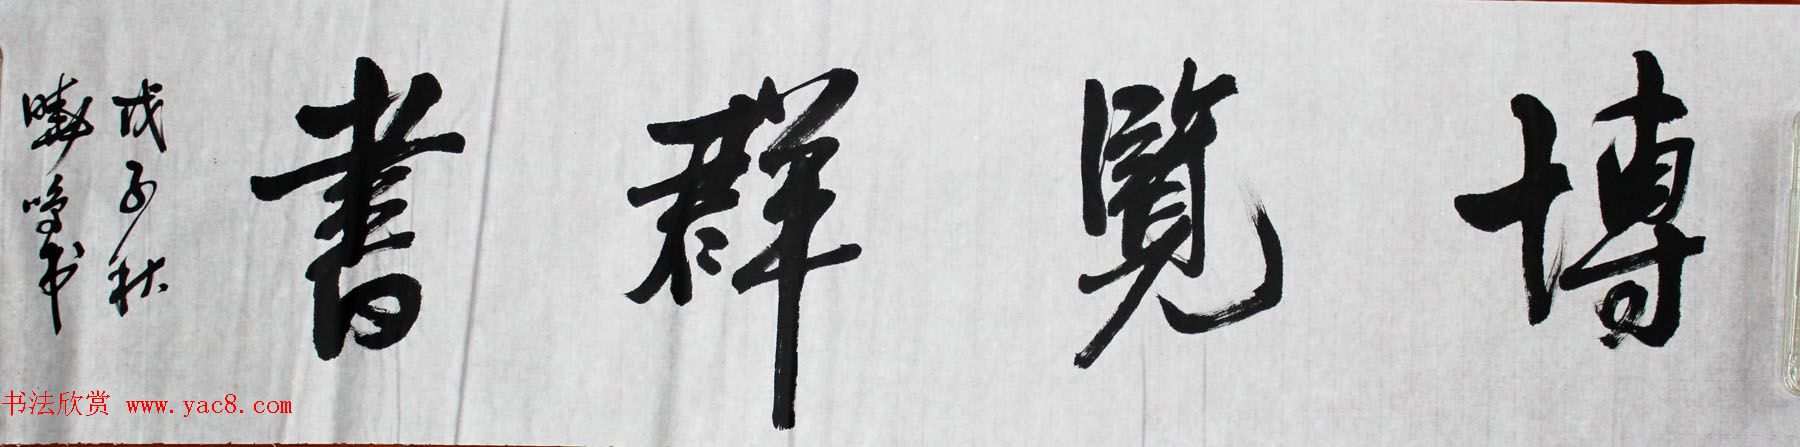 博覽群書
戊子秋
曉鳴书
书法欣赏 www.yac8.com